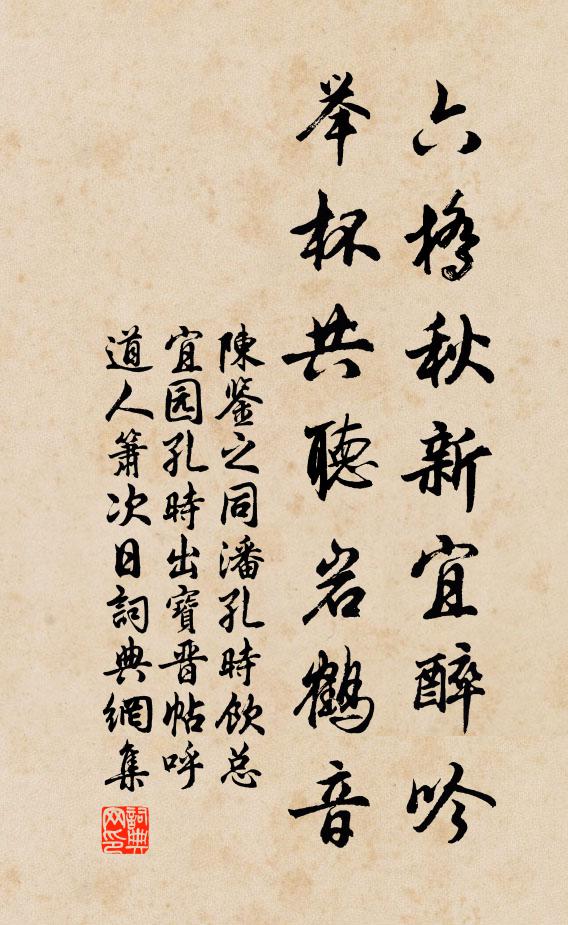 六橋秋新宜醉吟
举杯共聽岩鶴音
陳鉴之同潘孔時飲总
宜园孔時出寶晋帖呼
道人簫次日詞典網集
詞典网印